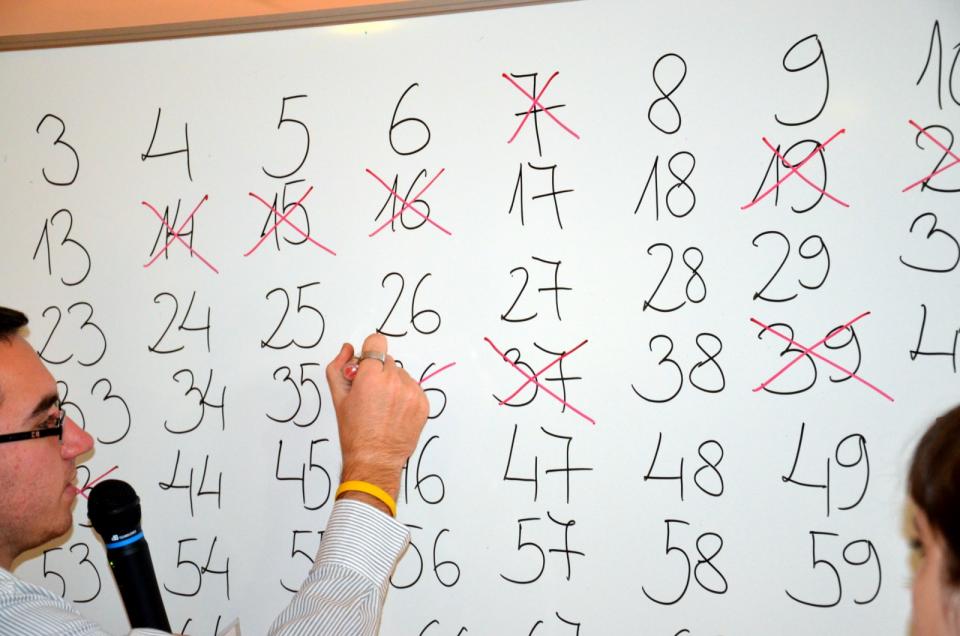 3 4 5 6 7 8 9 10
13 14 15 16 17 18 19 2
23 24 25 26 27 28 29 3
33 34 35 36 37 38 39 4
44 45 46 47 48 49
53 54 5 56 57 58 59